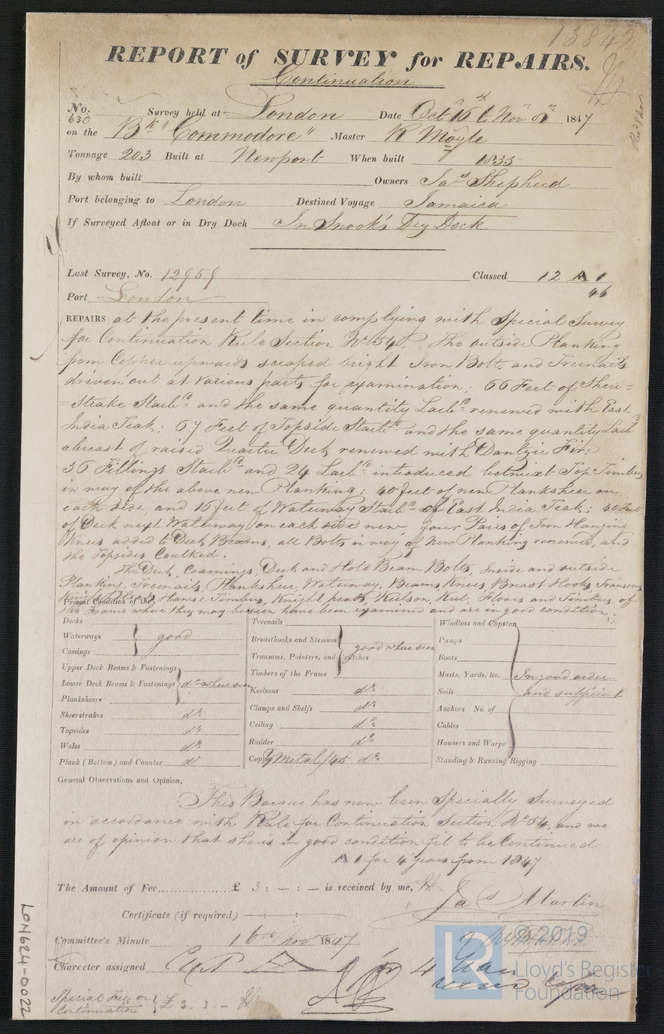 13842
REPORT of SURVEY for REPAIRS.
Continuation
No. 630 Survey held at London Date Octr 16 to Novr 1847
on the Bk "Commodore" Master R Moyle
Tonnage 203 Built at Newport When built 1835
By whom built Owners Jas Shepherd
Port belonging to London Destined Voyage Jamaica
If Surveyed Afloat or in Dry Dock In Snook's Dry Dock
Last Survey, No. Classed 12 A 1
Port London 46
REPAIRS at the present time in complying with Special Survey
for Continuation Rule Section No 54. The outside Planking
from Copper upwards scraped bright Iron Bolts and Treenails
driven out at various parts for examination; 66 Feet of Sheer-
-Strake Starbd and the same quantity Larbd renewed with East
India Teak; 67 Feet of Topside Starbd and the same quantity Larbd
abreast of raised Quarter Deck renewed with Dantzic Fir.
36 Fillings Starbd and 24 Larbd introduced betwixt Top Timbers
in way of the above new Planking; 40 feet of new Planksheer on
each side, and 15 feet of Waterway Starbd of East India Teak; 40 Feet
of Deck next Waterway on each side new four Pairs of Iron Hanging
Knees added to Deck Beams, all Bolts in way of New Planking renewed, and
the Topsides Caulked.
The Deck, Coamings, Deck and Hold Beam Bolts, Inside and outside
Planking, Treenails, Planksheer, Waterway, Beams Knees Breast Hooks Transoms
Hause Timbers, Knight heads, Keelson, Keel, Floors and Timbers of
the Frame where they may be seen have been examined and are in good condition.
Present Condition of the
Decks
Waterways good
Comings
Upper Deck Beams & Fastenings
Lower Deck Beams & Fastenings do where seen
Planksheers
Sheerstrakes do
Topsides do
Wales do
Plank (Bottom) and Counter do
Treenails
Breasthooks and Stemson good where seen
Transoms, Pointers, and Crutches
Timbers of the Frame
Keelsons do
Clamps and Shelfs do
Ceiling do
Rudder do
Copper Y Metal /45 do
Windlass and Capstan
Pumps
Boats
Masts, Yards, &c. In good order
Sails and sufficient
Anchors No. of
Cables
Hawsers and Warps
Standing & Running Rigging
General Observations and Opinion,
This Barque has now been Specially Surveyed
in accordance with Rule for Continuation Section No 54, and we
are of opinion that she is in good condition fit to be Continued
A 1 for 4 Years from 1847
The Amount of Fee............... £ 3 : - : - is received by me,
Certificate (if required)
Jas Martin
Committee's Minute 16th Novr 1847
Character assigned A 1 for 4 Years
Special Fee on Continuation £ 3. 3. -
LON624-0022
LR © 2019
Lloyd's Register
Foundation